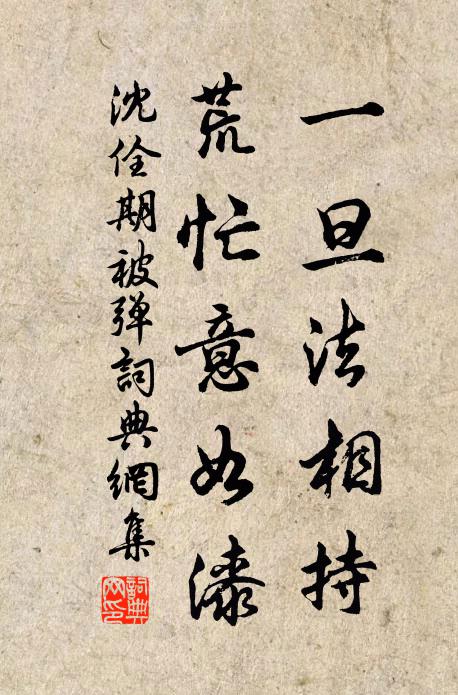 一旦法相持
荒忙意如漆
沈佺期被弹詞典網集
詞典网印